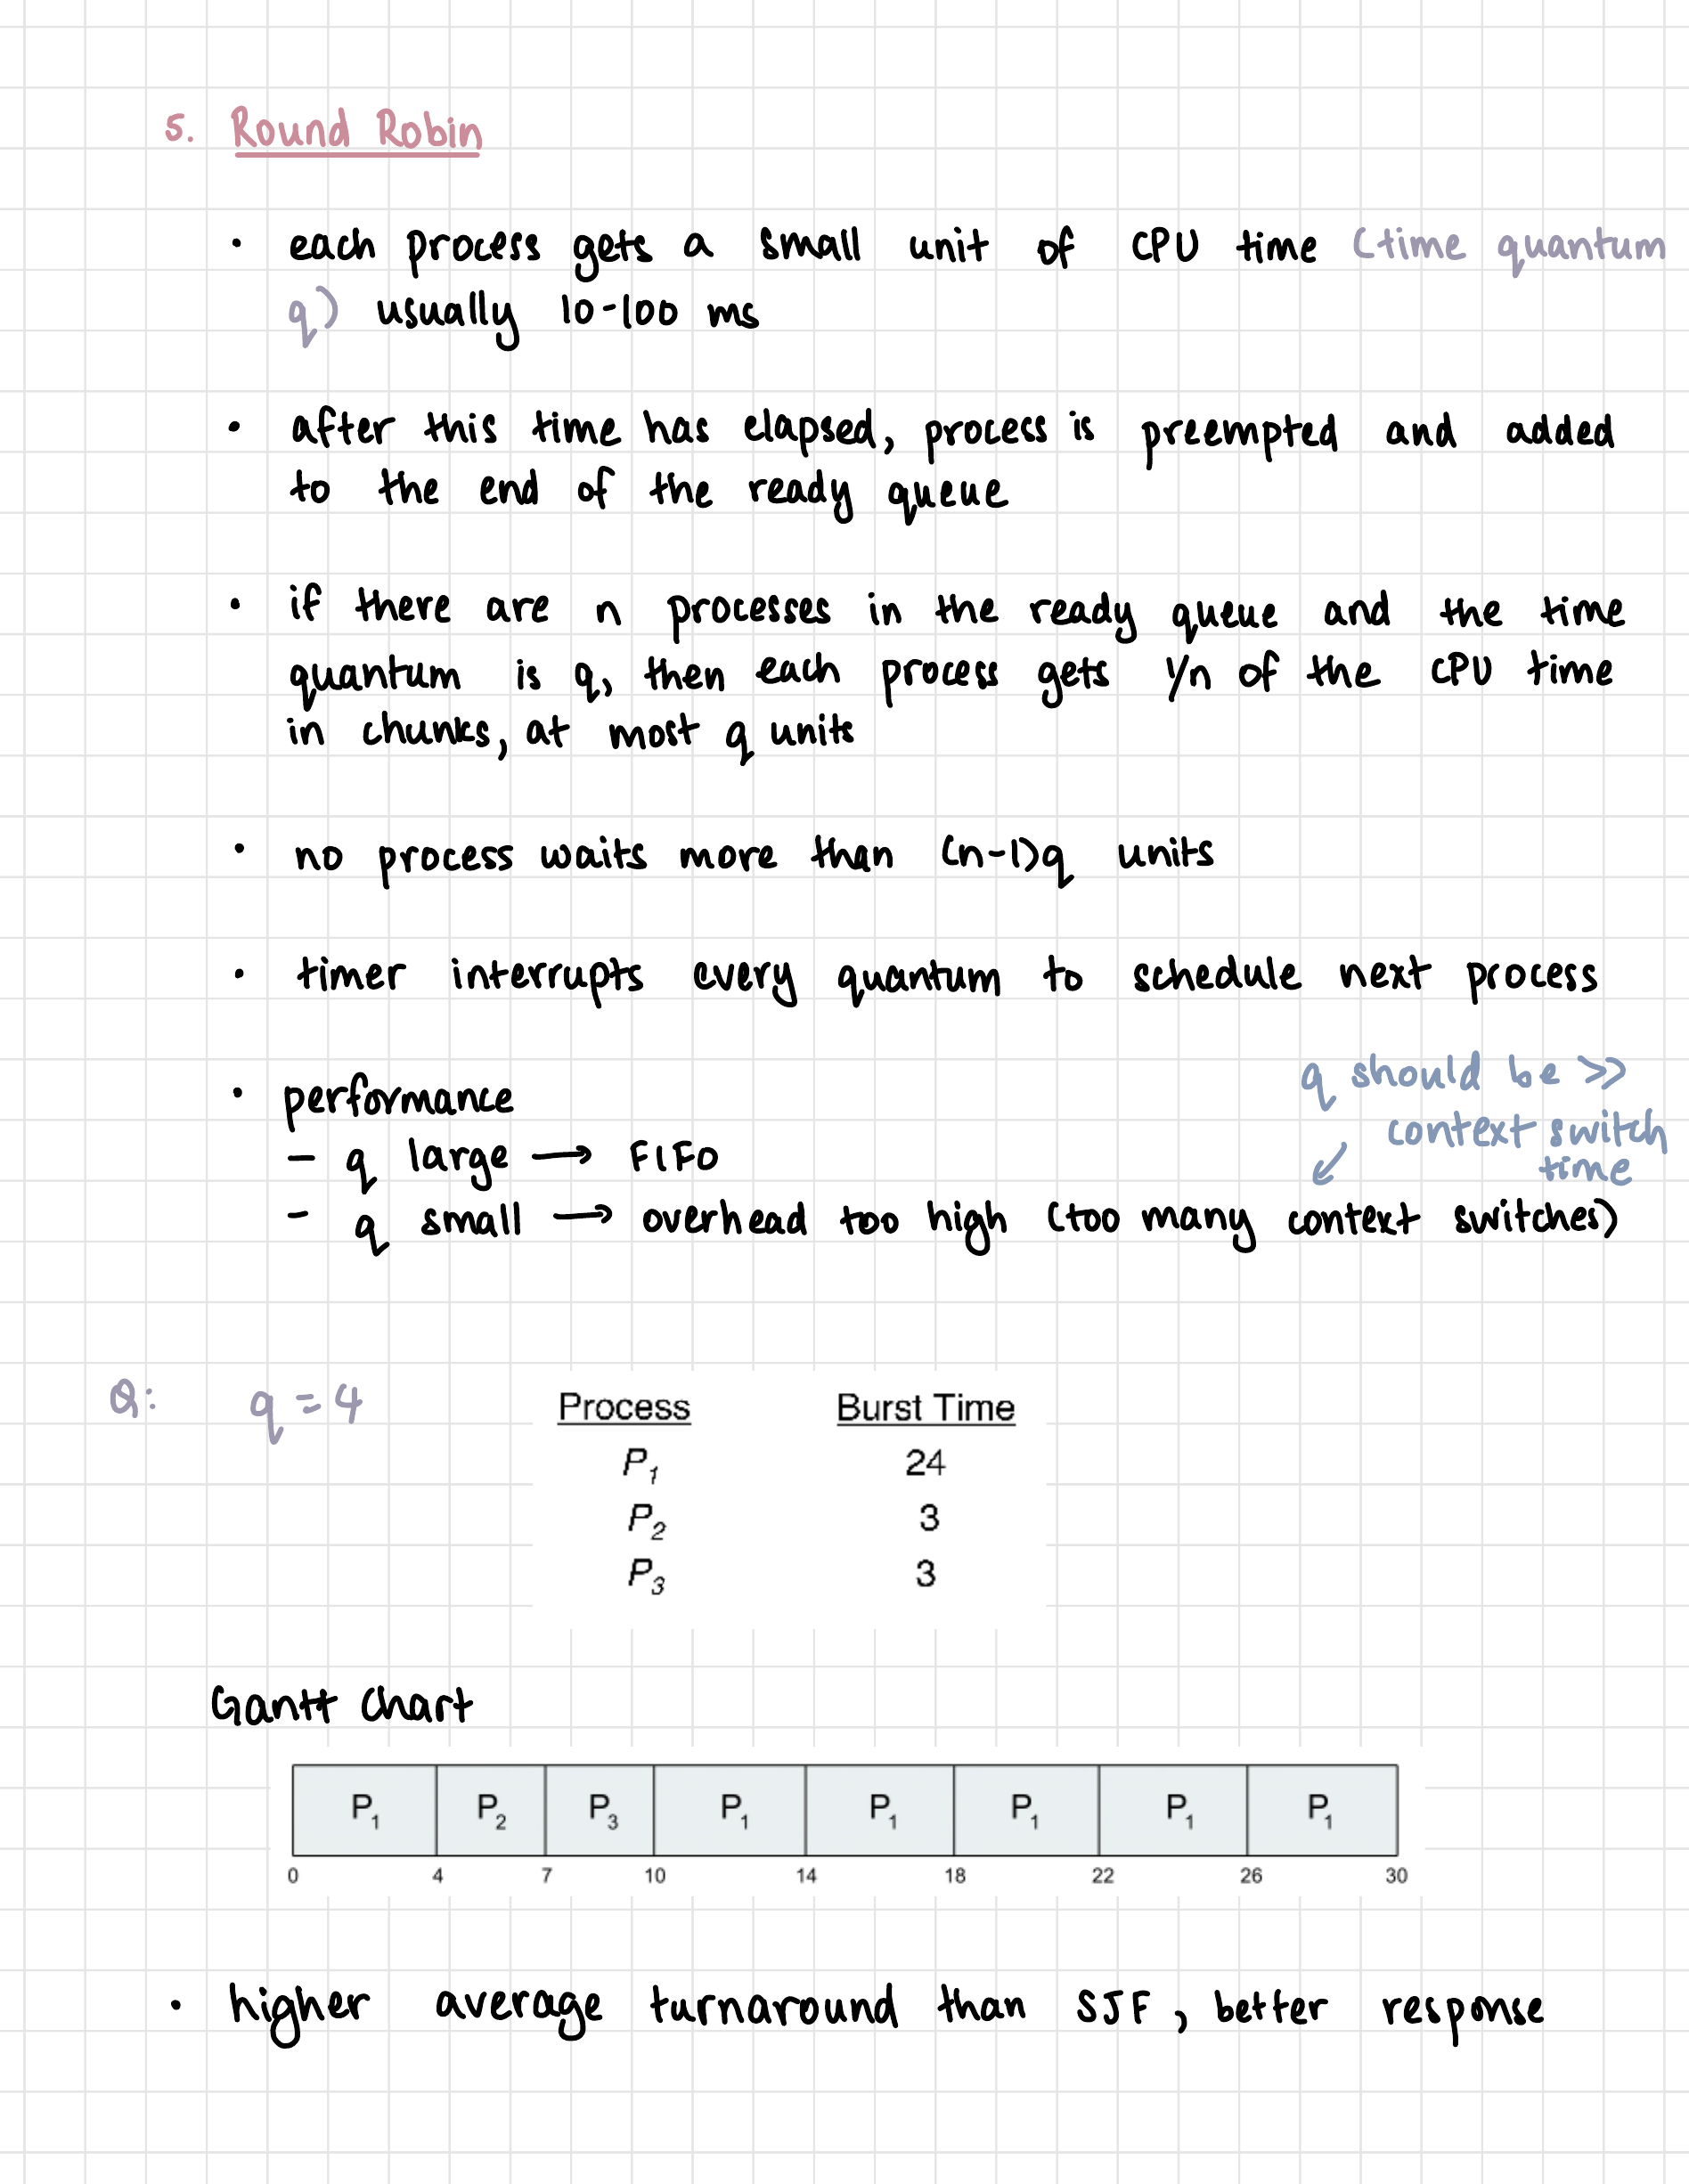 5. Round Robin
• each process gets a small unit of CPU time (time quantum
q) usually 10-100 ms
• after this time has elapsed, process is preempted and added
to the end of the ready queue
• if there are n processes in the ready queue and the time
quantum is q, then each process gets 1/n of the CPU time
in chunks, at most q units
• no process waits more than (n-1)q units
• timer interrupts every quantum to schedule next process
• performance
q should be >>
context switch
time
- q large → FIFO
- q small → overhead too high (too many context switches)
Q: q = 4
Process Burst Time
P1 24
P2 3
P3 3
Gantt Chart
P1 P2 P3 P1 P1 P1 P1 P1
0 4 7 10 14 18 22 26 30
• higher average turnaround than SJF, better response